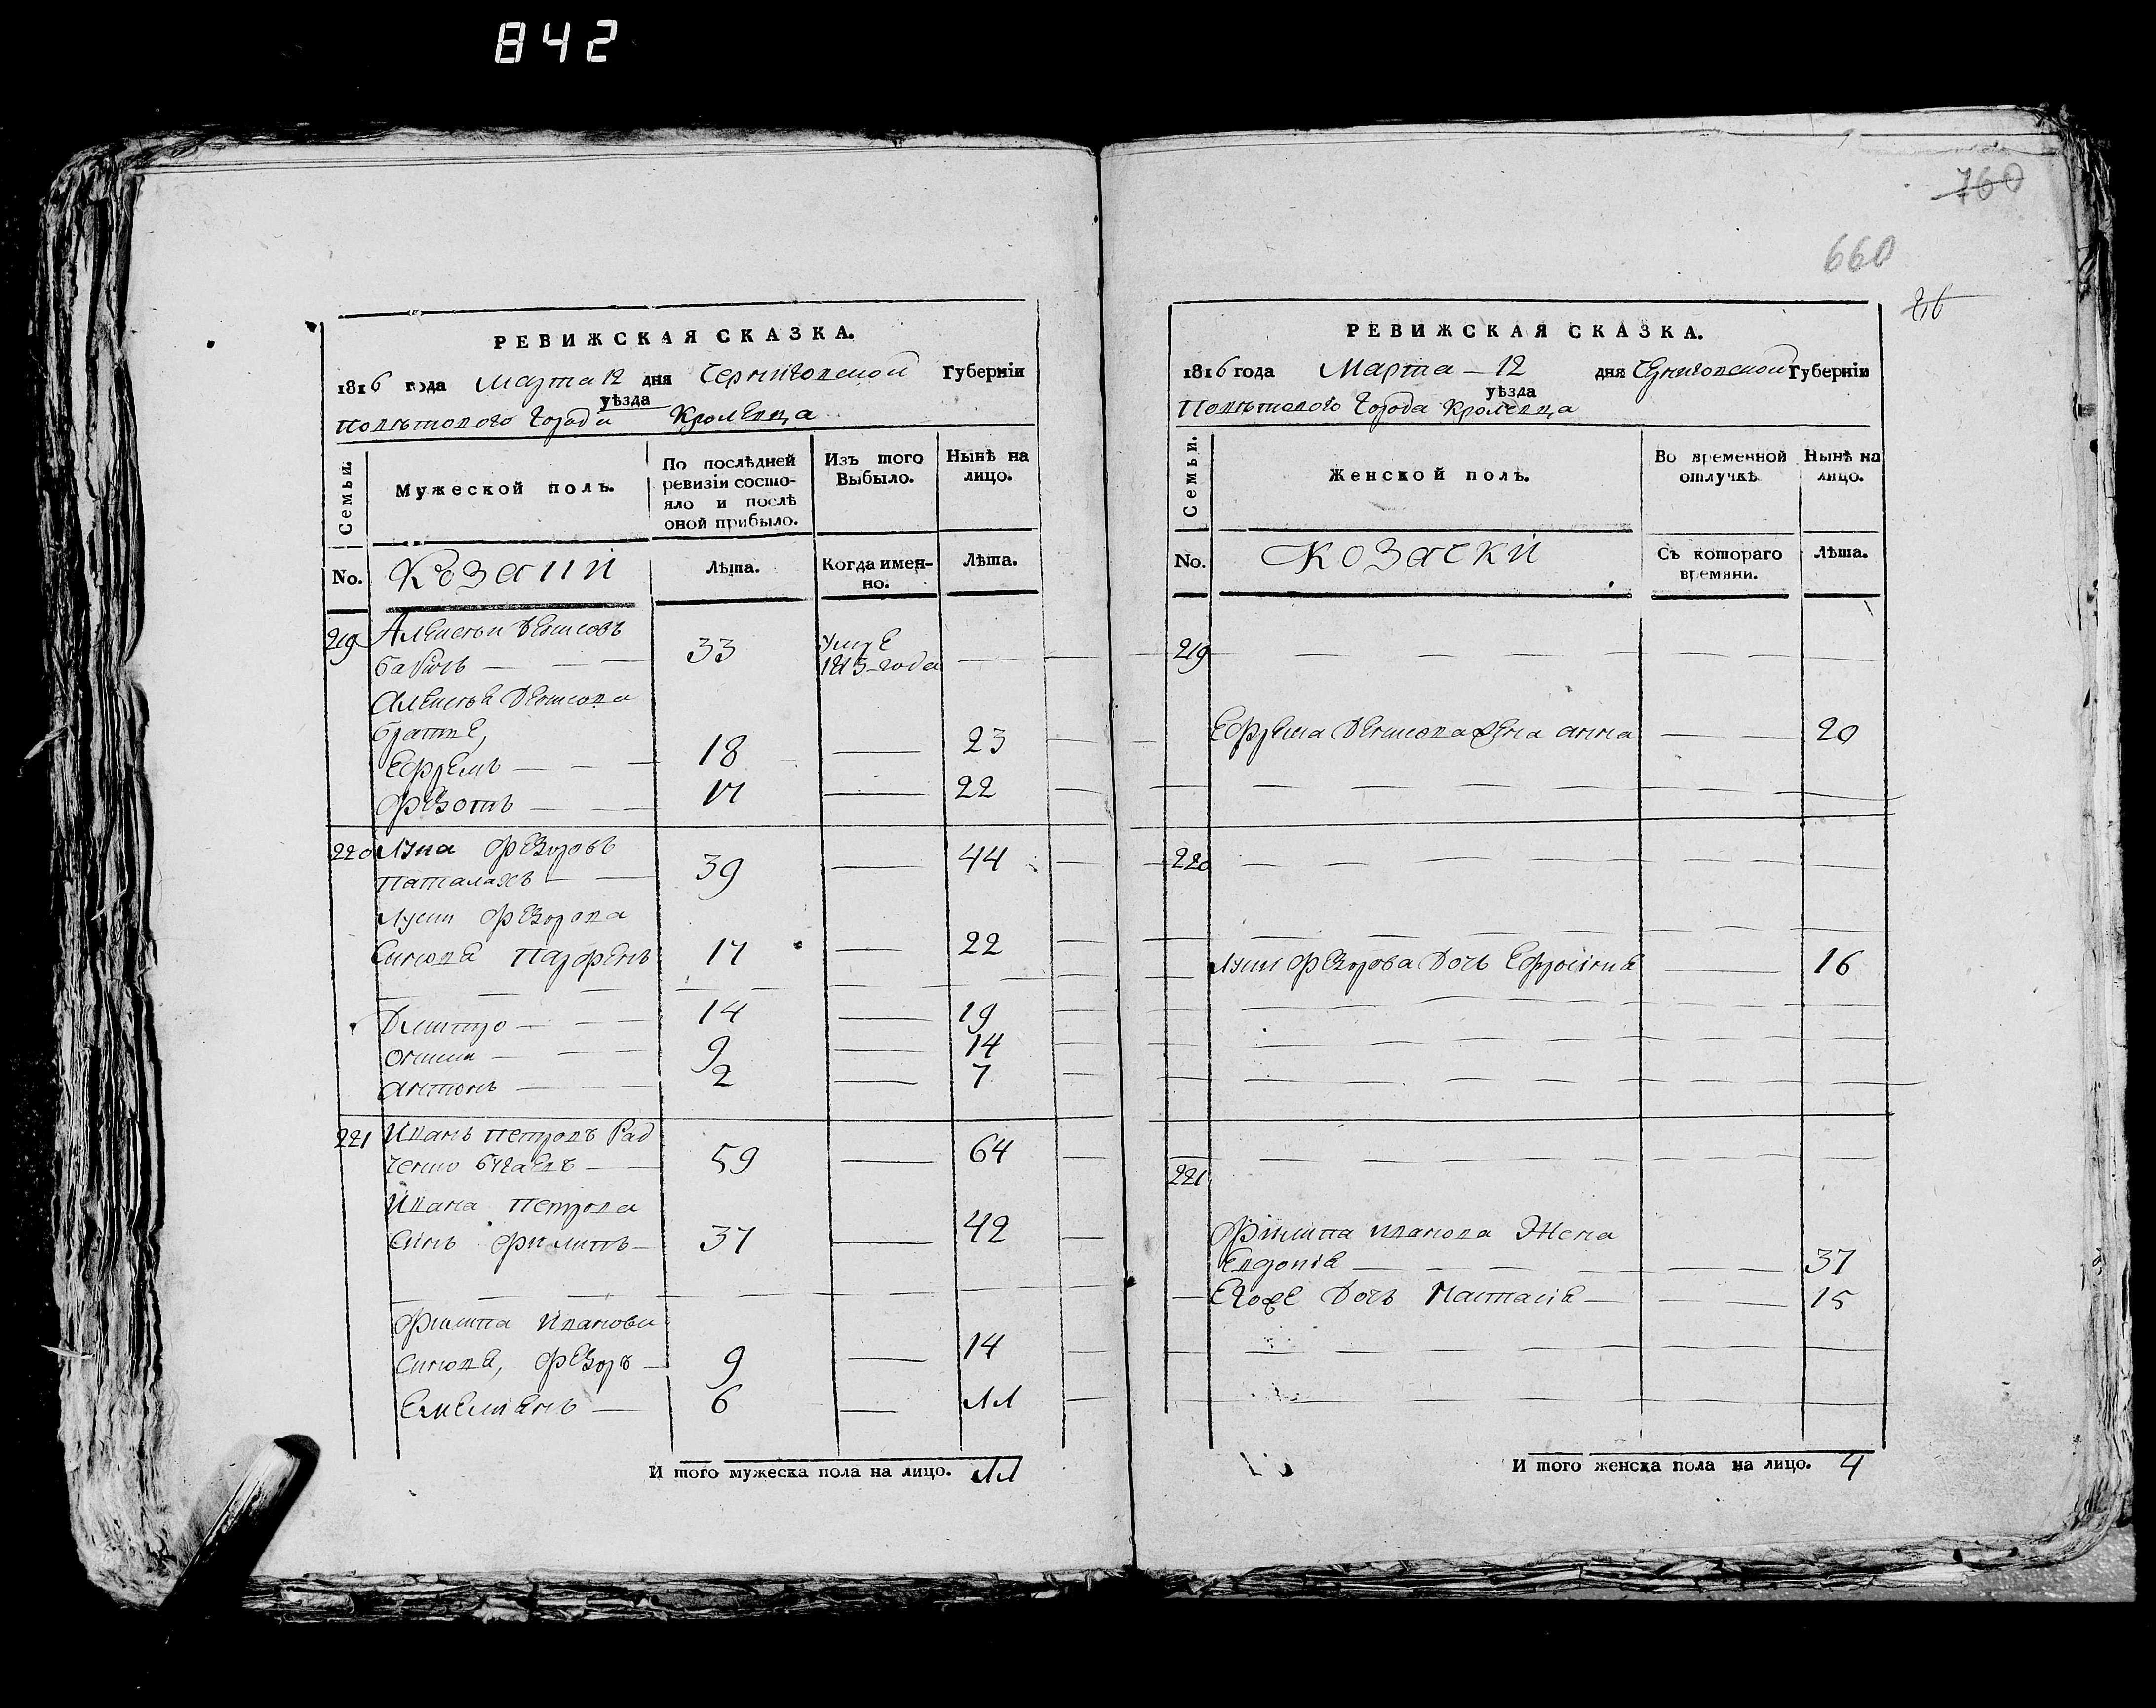 842
760
660
26
РЕВИЖСКАЯ СКАЗКА.
1816 года Марта 12 дня Черниговской Губернїи
уѣзда
Повѣтового города Кролевца
Семьи.
Мужеской полъ.
По послѣдней
ревизїи состо-
яло и послѣ
оной прибыло.
Изъ того
Выбыло.
Нынѣ на
лицо.
No.
Козаки
Лѣта.
Когда имен-
но.
Лѣта.
219 Алексѣй Денисовъ
33
Умре
1815 года
Алексѣя Денисова
братья,
Ефремъ 18 23
Федотъ 17 22
220 Лука Федоровъ
39 44
Луки Федорова
Синовя Парфенъ 17 22
Дмитро 14 19
9 14
Антонъ 2 7
221 Иванъ Петровъ Рад
ченко 59 64
Ивана Петрова
Синъ Филипъ 37 42
Филипа Иванова
Синовя, Федоръ 9 14
Емелиянъ 6 11
И того мужеска пола на лицо. 11
РЕВИЖСКАЯ СКАЗКА.
1816 года Марта 12 дня Черниговской Губернїи
уѣзда
Повѣтового города Кролевца
Семьи.
Женской полъ.
Во временной
отлучкѣ
Нынѣ на
лицо.
No.
Козачки
Съ котораго
времяни.
Лѣта.
219
Ефрема Денисова жена анна 20
220
Луки Федорова Дочь Ефросиния 16
221
Филипа Иванова Жена
Евдокия 37
Егоже Дочь Настасия 15
И того женска пола на лицо. 4